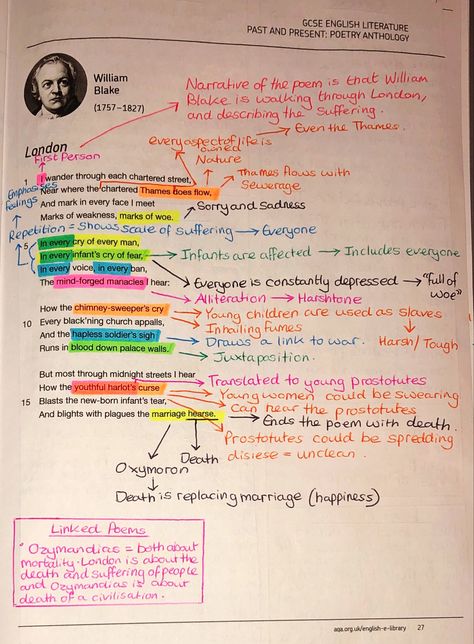 GCSE ENGLISH LITERATURE
PAST AND PRESENT: POETRY ANTHOLOGY
William
Blake
(1757–1827)
Narrative of the poem is that William
Blake is walking through London,
and describing the Suffering.
Even the Thames.
everyaspect of life is
owned
Nature
London
First Person
Thames flows with
Sewerage
1 I wander through each chartered street,
Emphasises
feelings
Near where the chartered Thames does flow,
And mark in every face I meet
Sorry and Sadness
Marks of weakness, marks of woe.
Repetition = Shows scale of suffering → Everyone
5 In every cry of every man,
In every infant's cry of fear,
Infants are affected → Includes everyone
In every voice, in every ban,
Everyone is constantly depressed → "full of
woe"
The mind-forged manacles I hear:
Alliteration → Harshtone
How the chimney-sweeper's cry
Young children are used as slaves
10 Every black'ning church appalls,
Inhailing fumes
And the hapless soldier's sigh
Draws a link to war.
Harsh/Tough
Runs in blood down palace walls.
Juxtaposition.
But most through midnight streets I hear
Translated to young prostotutes
How the youthful harlot's curse
Young women could be swearing
15 Blasts the new-born infant's tear,
Can hear the prostotutes
And blights with plagues the marriage hearse.
Ends the poem with death.
Prostotutes could be spredding
disiese = unclean.
Death
Oxymoron
Death is replacing marriage (happiness)
Linked Poems
• Ozymandias = both about
mortality. London is about the
death and suffering of people
and Ozymandias is about
death of a civilisation.
aqa.org.uk/english-e-library 27